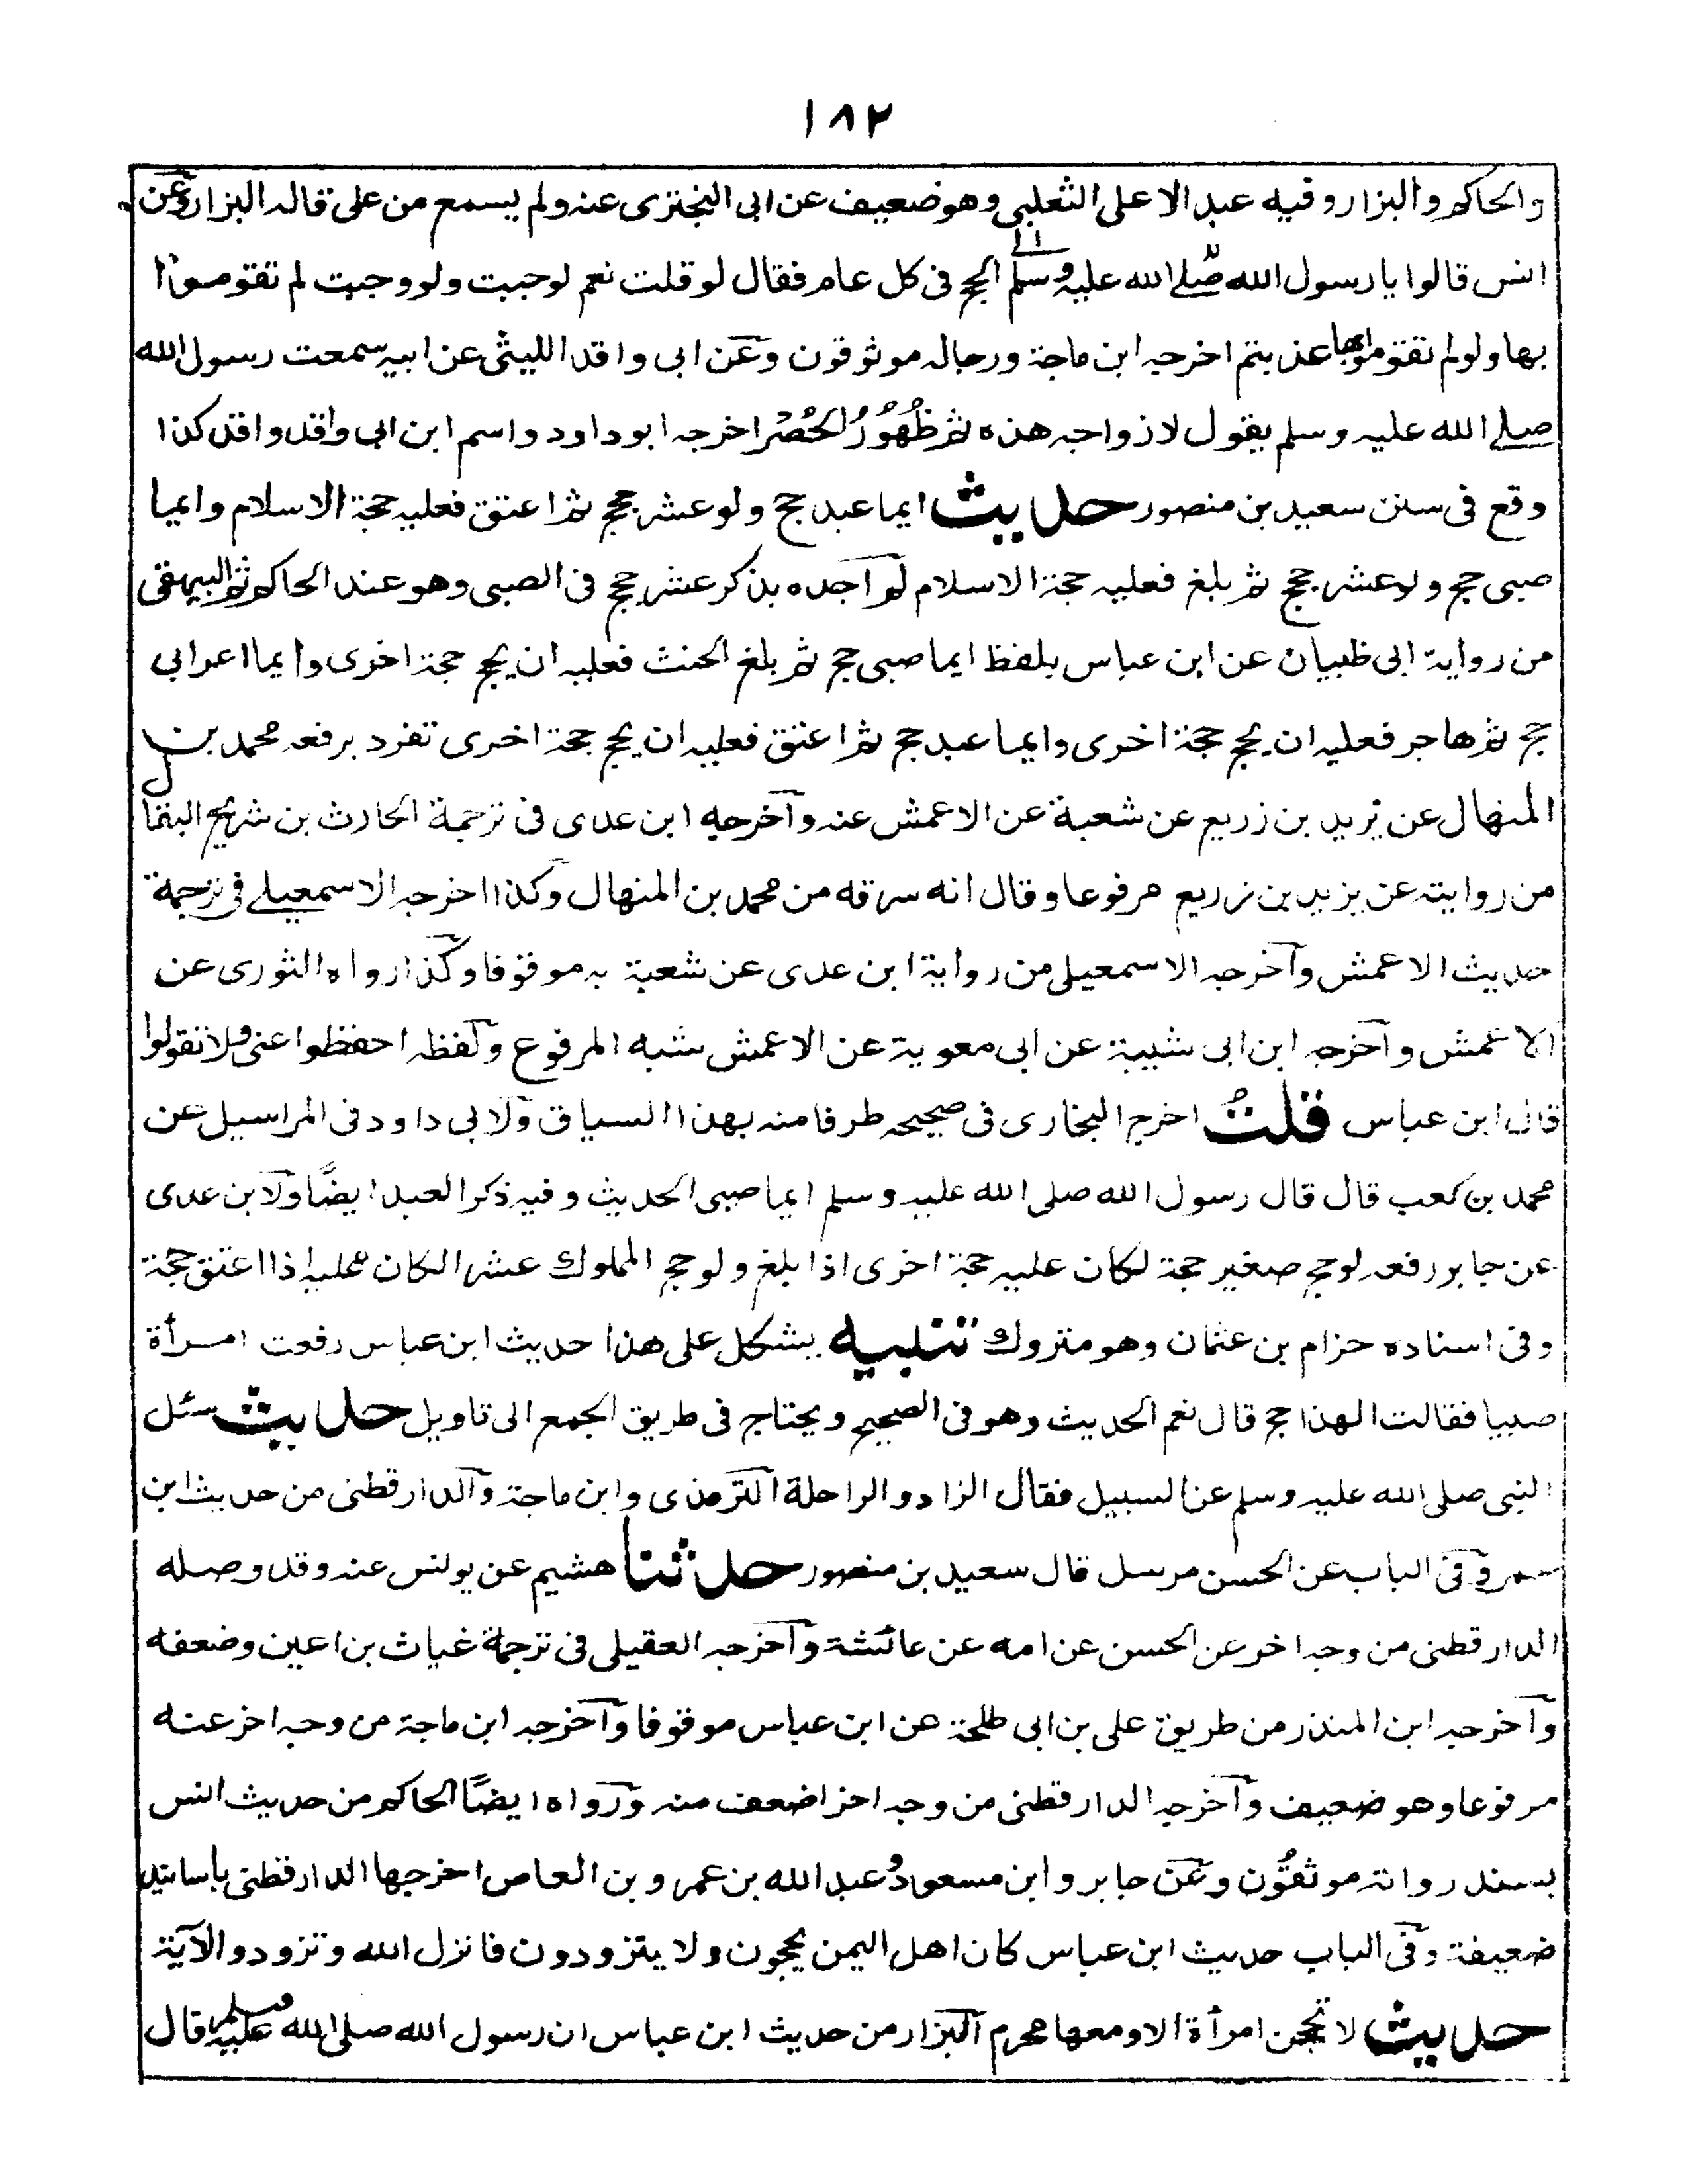 ١٨٢
والحاكم والبزار وفيه عبد الاعلى الثعلبي وهو ضعيف عن ابى البختري عنه ولم يسمع من على قاله البزار وعن
انس قالوا يا رسول الله صلے الله عليه وسلم الحج فى كل عام فقال لو قلت نعم لوجبت ولو وجبت لم تقوموا
بها ولو لم تقوموا بها عذبتم اخرجه ابن ماجة ورجاله موثوقون وعن ابى واقد الليثى عن ابيه سمعت رسول الله
صلے الله عليه وسلم يقول لازواجه هذه ثم ظُهُورُ الحُصُرِ اخرجه ابو داود واسم ابن ابى واقد واقد كذا
وقع فى سنن سعيد بن منصور حديث ايما عبد حج ولو عشر حجج ثم اعتق فعليه حجة الاسلام وايما
صبى حج ولو عشر حجج ثم بلغ فعليه حجة الاسلام لم اجده بذكر عشر حجج فى الصبى وهو عند الحاكم ثم البيهقى
من رواية ابى ظبيان عن ابن عباس بلفظ ايما صبى حج ثم بلغ الحنث فعليه ان يحج حجة اخرى وايما اعرابى
حج ثم هاجر فعليه ان يحج حجة اخرى وايما عبد حج ثم اعتق فعليه ان يحج حجة اخرى تفرد برفعه محمد بن
المنهال عن يزيد بن زريع عن شعبة عن الاعمش عنه وآخرجه ابن عدى فى ترجمة الحارث بن شريح النقا
من روايته عن يزيد بن زريع مرفوعا وقال انه سرقه من محمد بن المنهال وكذا اخرجه الاسمعيلے فى ترجمة
حديث الاعمش وآخرجه الاسمعيلى من رواية ابن عدى عن شعبة به موقوفا وكذا رواه الثورى عن
الاعمش وآخرجه ابن ابى شيبة عن ابى معوية عن الاعمش شبه المرفوع ولفظه احفظوا عنى ولا تقولوا
قال ابن عباس قلتُ اخرج البخارى فى صحيحه طرفا منه بهذا السياق ولابى داود فى المراسيل عن
محمد بن كعب قال قال رسول الله صلى الله عليه وسلم ايما صبى الحديث وفيه ذكر العبد ايضًا ولابن عدى
عن جابر رفعه لو حج صغير حجة لكان عليه حجة اخرى اذا بلغ ولو حج المملوك عشرا لكان عليه اذا اعتق حجة
وفى اسناده حزام بن عثمان وهو متروك تنبيه يشكل على هذا حديث ابن عباس رفعت امرأة
صبيا فقالت الهذا حج قال نعم الحديث وهو فى الصحيح ويحتاج فى طريق الجمع الى تاويل حديث سئل
النبى صلى الله عليه وسلم عن السبيل فقال الزاد والراحلة الترمذى وابن ماجة والدارقطنى من حديث ابن
عمر وفى الباب عن الحسن مرسل قال سعيد بن منصور حدثنا هشيم عن يونس عنه وقد وصله
الدارقطنى من وجه اخر عن الحسن عن امه عن عائشة وآخرجه العقيلى فى ترجمة غياث بن اعين وضعفه
وآخرجه ابن المنذر من طريق على بن ابى طلحة عن ابن عباس موقوفا وآخرجه ابن ماجة من وجه اخر عنه
مرفوعا وهو ضعيف وآخرجه الدارقطنى من وجه اخر اضعف منه ورواه ايضًا الحاكم من حديث انس
بسند رواته موثقُون وعن جابر وابن مسعود وعبد الله بن عمرو بن العاص اخرجها الدارقطنى باسانيد
ضعيفة وفى الباب حديث ابن عباس كان اهل اليمن يحجون ولا يتزودون فانزل الله وتزودوا الآية
حديث لا تحجن امرأة الا ومعها محرم البزار من حديث ابن عباس ان رسول الله صلى الله عليه وسلم قال